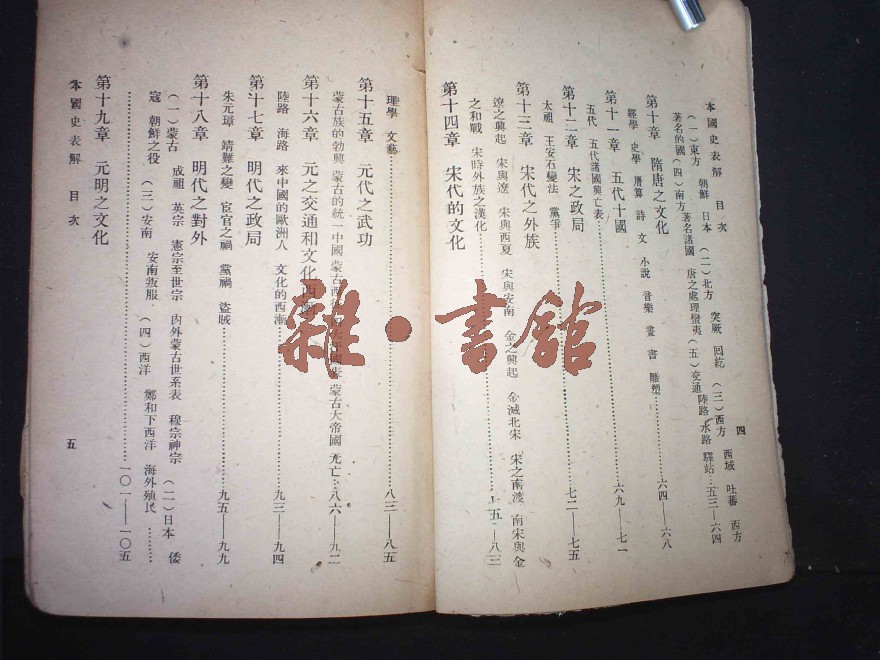 本國史表解 目次
四
(一)東方 朝鮮 日本 (二)北方 突厥 回紇 (三)西方 西域 吐蕃 西方
著名的國(四)南方著名諸國 唐之處理蠻夷(五)交通 陸路 水路 驛站……五三—六四
第十章 隋唐之文化
經學 史學 曆算 詩 文 小說 音樂 畫 書 雕塑……六四—六八
第十一章 五代十國
五代 五代諸國興亡表……六九—七一
第十二章 宋之政局
太祖 王安石變法 黨爭……七二—七五
第十三章 宋代之外族
遼之興起 宋與遼 宋與西夏 宋與安南 金之興起 金滅北宋 宋之南渡 南宋與金
之和戰 宋時外族之漢化……七五—八三
第十四章 宋代的文化
理學 文藝……八三—八五
第十五章 元代之武功
蒙古族的勃興 蒙古的統一中國 蒙古西征 蒙古大帝國 元亡…八六—九二
第十六章 元之交通和文化西漸
陸路 海路 來中國的歐洲人 文化的西漸……九三—九四
第十七章 明代之政局
朱元璋 靖難之變 宦官之禍 黨禍 盜賊……九五—九九
第十八章 明代之對外
(一)蒙古 成祖 英宗 憲宗至世宗 內外蒙古世系表 穆宗神宗 (二)日本 倭
寇 朝鮮之役 (三)安南 安南叛服 (四)西洋 鄭和下西洋 海外殖民……
……一〇一—一〇五
第十九章 元明之文化
本國史表解 目次
五
雜·書館